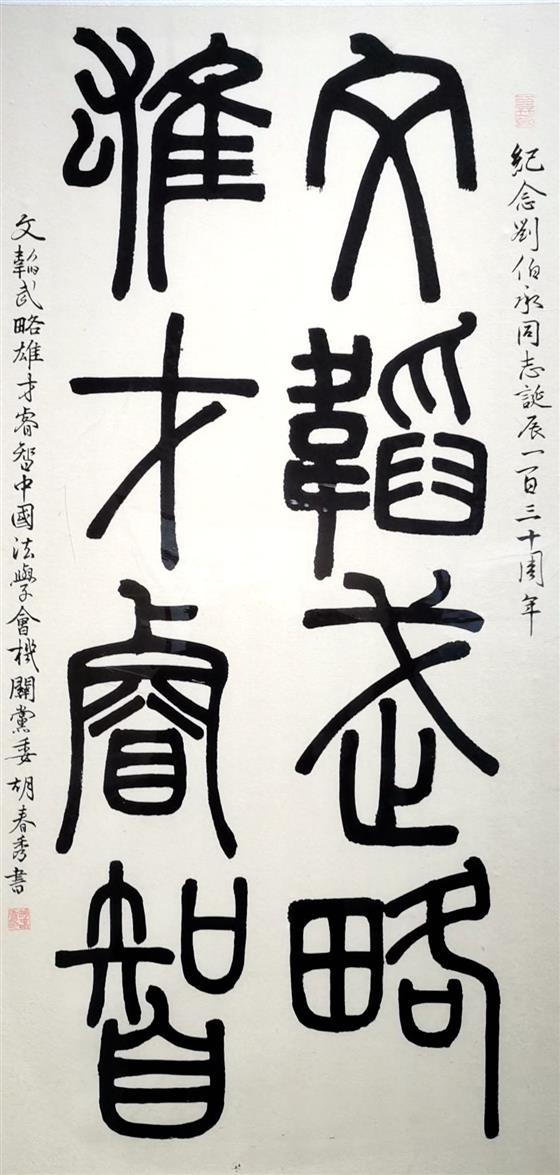 紀念劉伯承同志誕辰一百三十周年
文韜武略
雄才睿智
文韜武略雄才睿智中國法學會機關黨委胡春秀書